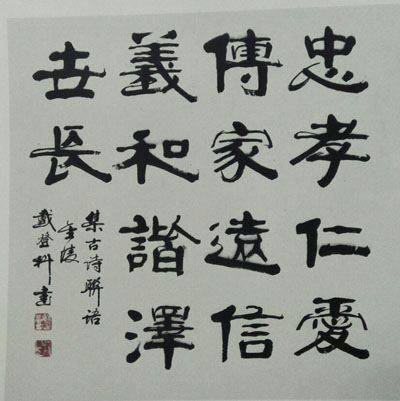 忠孝仁愛
傳家遠信
義和諧澤
世長
集古诗聯语
金陵
戴登科書